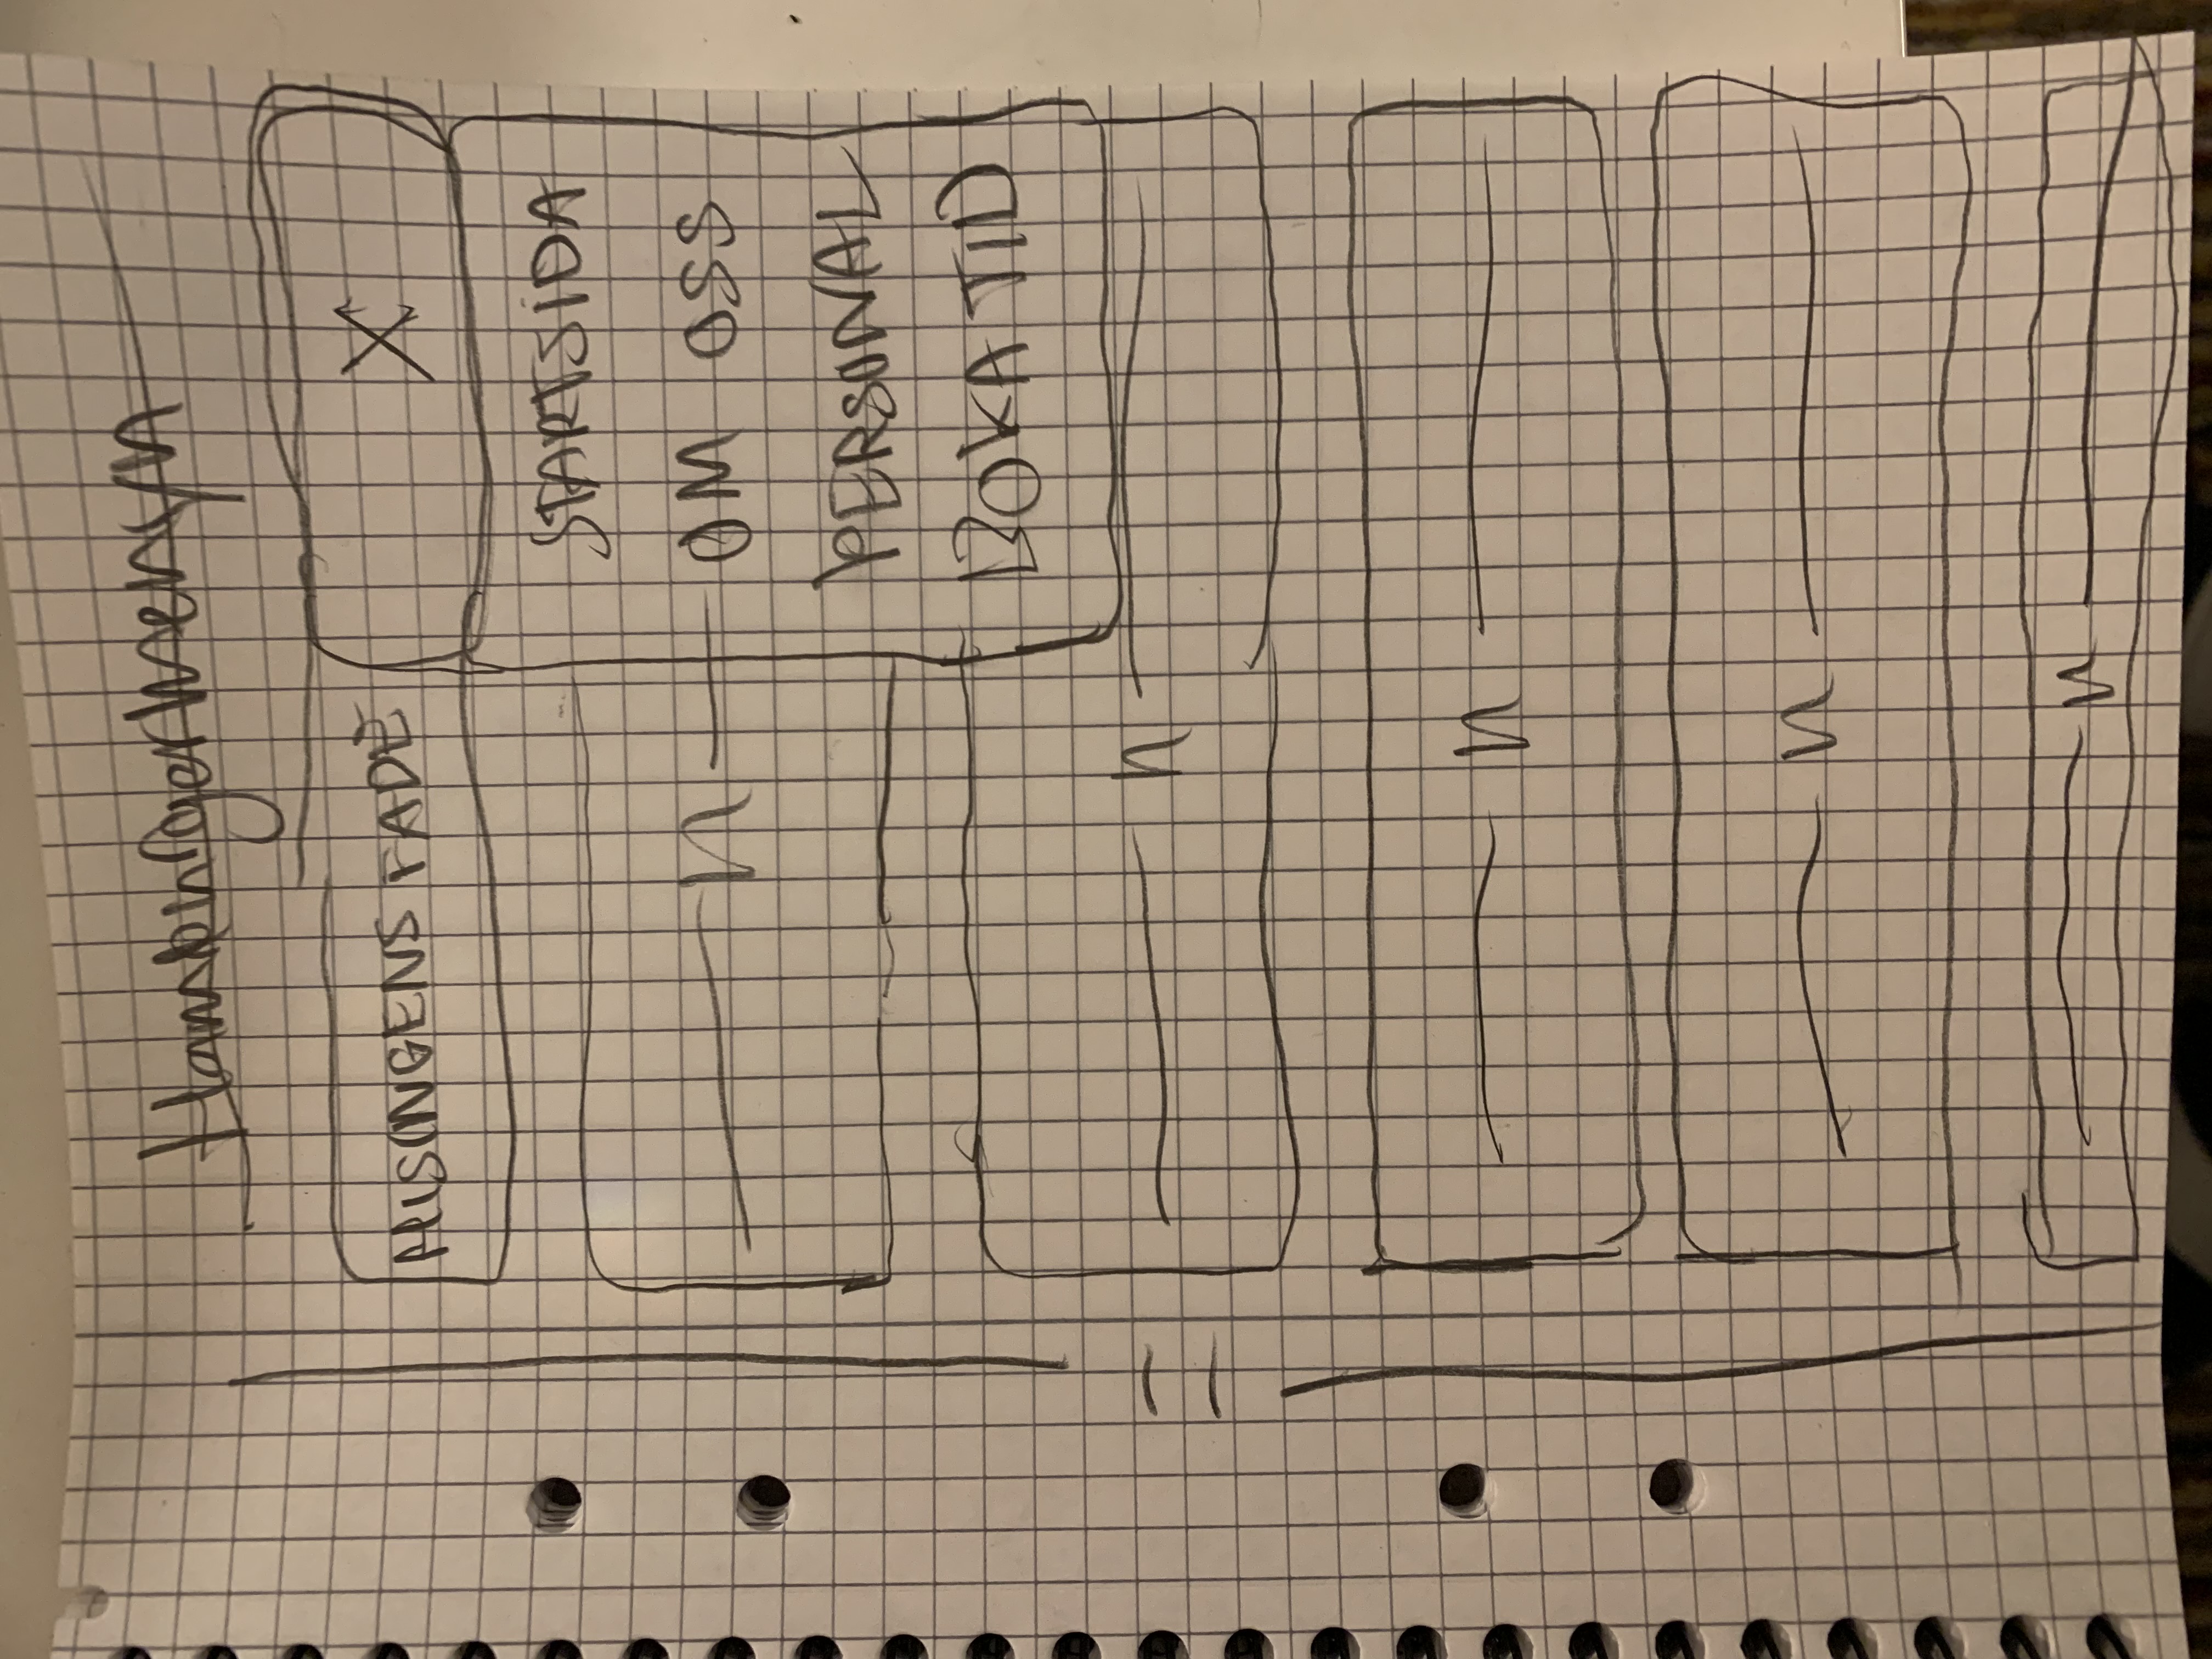 Hamburgermenyn
HISINGENS FADE
X
STARTSIDA
— n —
OM OSS
PERSONAL
BOKA TID
— n —
— n —
— n —
— n —